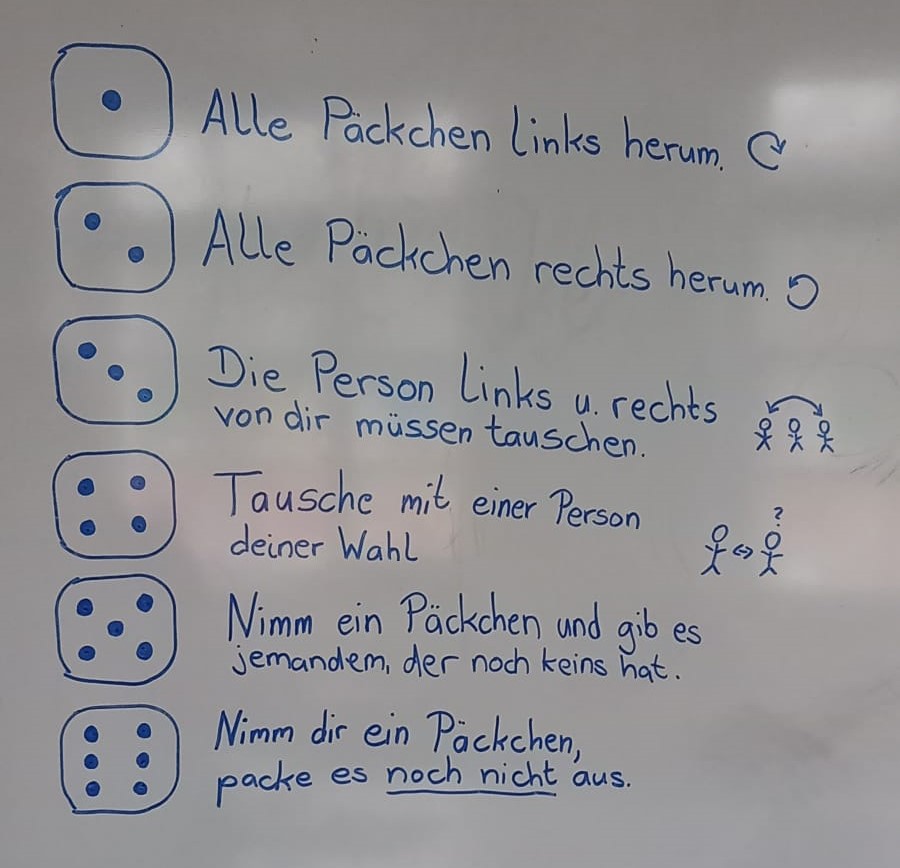 Alle Päckchen links herum.
Alle Päckchen rechts herum.
Die Person links u. rechts
von dir müssen tauschen.
Tausche mit einer Person
deiner Wahl
?
Nimm ein Päckchen und gib es
jemandem, der noch keins hat.
Nimm dir ein Päckchen,
packe es noch nicht aus.